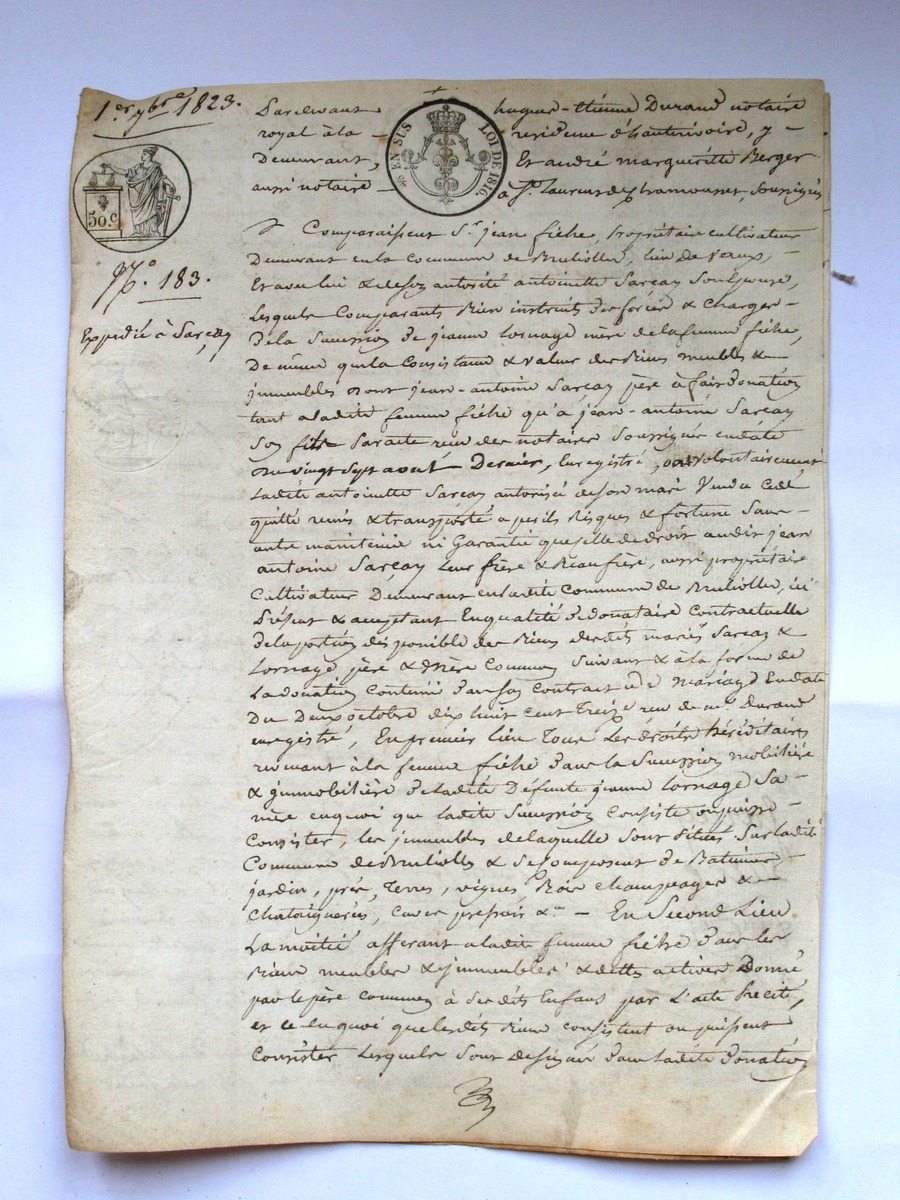 1er 9bre 1823.
50.c
N.o 183.
Expédié à Sarcay
EN SUS LOI DE 1816.
Pardevant hugues-étienne Durand notaire
royal à la résidence d'hauterivoire, y
Demeurant, Et andré margueritte Berger
aussi notaire à St. Laurent de Chamousset, soussignés
Comparaissent Sr. jean fiéhe, propriétaire cultivateur
Demeurant en la Commune de Brullolles, lieu de Vaux,
Et avec lui & de son autorité antoinette Sarcay Son épouse,
Lesquels Comparants Bien instruits des forces & Charges
De la Succession de jeanne Lornage mère de la femme fiéhe,
De même que la Consistance & valeur des Biens meubles &
immeubles dont jean-antoine Sarcay père à fait Donation
tant a ladite femme fiéhe qu'a jean-antoine Sarcay
Son fils Par acte reçu des notaires Soussignés en date
Du vingt Sept août Dernier, Enregistré, ont volontairement
Ladite antoinette Sarcay autorisée de son mari Vendu Cédé
quitté remis & transporté a perils Risques & fortune Sans
autre maintenue ni Garantie que celle de droit audit jean
antoine Sarcay leur frère & Beaufrère, aussi propriétaire
Cultivateur Demeurant en ladite Commune de Brullolles, ici
Présent & acceptant En qualité de donataire Contractuelle
De la portion disponible des Biens desdits mariés Sarcay &
Lornage, père & mère Commun Suivant & à la forme de
La donation Contenue dans son Contract de Mariage En date
Du Deux octobre dix huit Cent Treize reçu de me. Durand
enregistré, En premier lieu Tous Les droits héréditaires
revenant à la femme fiéhe dans la Succession mobilière
& immobilière de ladite Défunte jeanne Lornage Sa
mère en quoi que ladite Succession Consiste ou puisse
Consister, les immeubles de laquelle Sont Situés Sur ladite
Commune de Brullolles & se Composent de Batiments
jardin, prés, Terres, vignes, Bois champeages &
Chataigneries, Cuves pressoir &a. En Second Lieu
La moitié afferant a ladite femme fiéhe dans les
Biens meubles & immeubles & dettes actives Donné
par le père commun à Ses dits Enfans par L'acte Précité,
et ce En quoi que lesdits Biens consistent ou puissent
Consister Lesquels Sont désignés dans ladite Donation